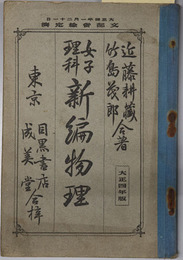 大正四年一月二十一日
文部省檢定濟
近藤耕藏
竹島茂郎
合著
女子
理科
新編物理
大正四年版
東京
目黑書店
成美堂
合梓